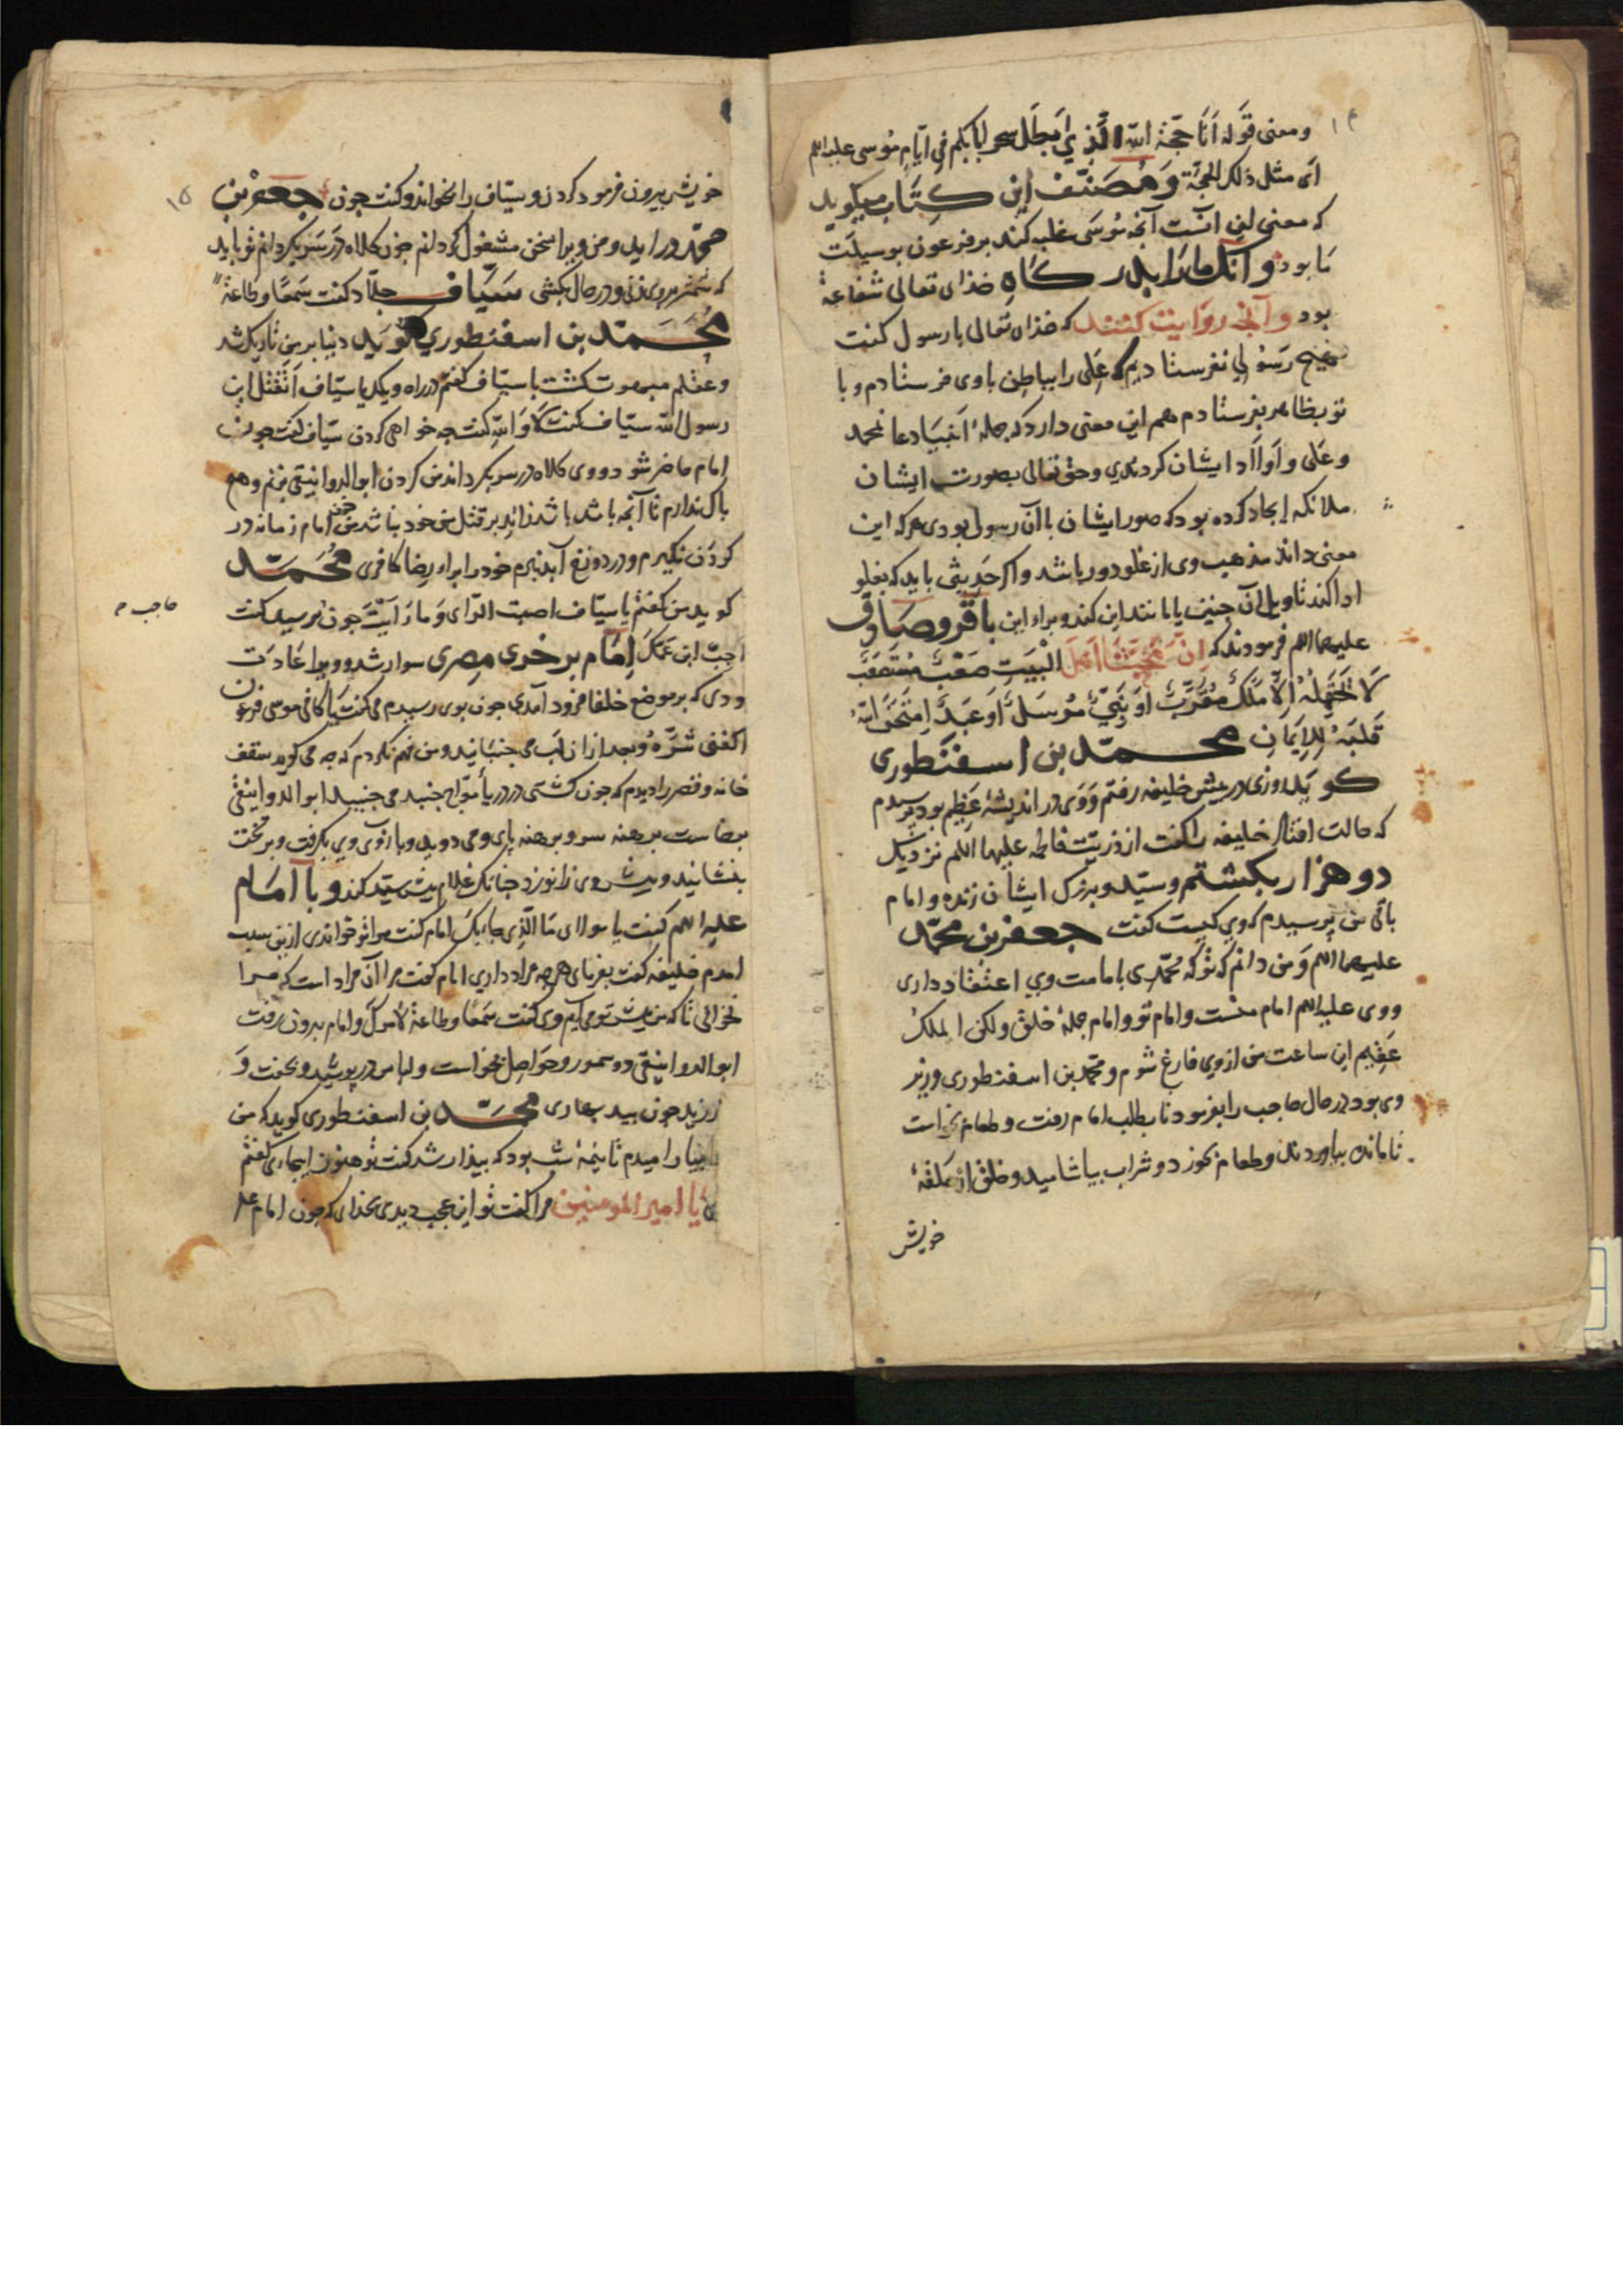 ومعنی قوله انا حجة الله الذي ابطل سحر في ایام موسی علیه السلم
ای مثل ذلک الحجة ومصنف این کتاب میکوید
که معنی این انست آنجه موسی غلبه کند بر فرعون بوسیلت
ما بود وانک مارا بدرکاه خذای تعالی شفاعة
بود وآنج روایت کنند که خذای تعالی با رسول کفت
هیج رسولی نفرستادیم که علی را بباطن باوی فرستادم وبا
تو بظاهر بفرستادم هم این معنی دارد که جملهٔ انبیا دعا بمحمد
وعلی واولاد ایشان کردندي وحق تعالی بصورت ایشان
ملائکه ایجاد کرده بود که صور ایشان با آن رسول بودی هرکه این
معنی داند مذهب وی از غلو دور باشد واکر حدیثی باید که بغلو
ادا کند تاویل آن جنین یا مانند این کند وبراء این باقر وصادق
علیهما السلم فرمودند که ان محبتنا اهل البیت صعب مستصعب
لا یحتمله الا ملک مقرب او نبی مرسل او عبد امتحن الله
قلبه للایمان محمد بن اسفنطوری
کوید روزی در پیش خلیفه رفتم ووی در اندیشهٔ عظیم بود پرسیدم
که حالت افتاد خلیفه را کفت از ذریت فاطمه علیها السلم نزدیک
دو هزار بکشتم وسید وبزرک ایشان زنده وامام
باقی من پرسیدم که وي کیست کفت جعفر بن محمد
علیهما السلم ومن دانم که تو که محمدی بامامت وی اعتقاد داری
ووی علیه السلم امام منست وامام تو وامام جملهٔ خلق ولکن الملک
عقیم این ساعت من ازوی فارغ شوم ومحمد بن اسفنطوری وزیر
وی بود در حال حاجب را بفرمود تا بطلب امام رفت وطعام خواست
تا مائده بیاوردند وطعام بخورد وشراب بیاشامید وخلق از
خویش
۱۵
خویش بیرون فرمود کردن وسیاف را بخواند وکفت جون جعفر بن
محمد در اید ومن ویرا بسخن مشغول کردانم جون کلاه در سر بکردانم تو باید
که شمشیر بر وی زنی ودر حال بکشی سیاف جلاد کفت سمعا وطاعة
محمد بن اسفنطوري کوید دنیا بر من تاریک شد
وعقلم مبهوت کشت با سیاف کفتم در راه ویک یا سیاف اتقتل ابن
رسول الله سیاف کفت لا والله کفت جه خواهی کردن سیاف کفت جون
امام حاضر شود ووی کلاه در سر بکرداند من کردن ابو الدوانیقی بزنم وهیج
باک ندارم تا آنجه باشد باشد زاید بر قتل من خود نباشد من خون امام زمانه در
کردن نکیرم ودر دوزخ آبد نبرم خود را براء رضا کافری محمد
کوید من کفتم یا سیاف اصبت الرای وما رأیت جون برسید کفت
حاجب م
اجب ابن عمک امام بر خری مصری سوار شد وویرا عادت
ودی که بر موضع خلفا فرود آمدي جون بوی رسیدم می کفت یا کافی موسی فرعون
اکفنی شره وبعد ازان لب می جنبانید ومن فهم نکردم که جه می کوید سقف
خانه وقصر را دیدم که جون کشتی در دریا مواج جنبد می جنبید ابو الدوانیقی
برخاست برهنه سر وبرهنه پای ومی دوید وبازوی وي بکرفت وبر تخت
بنشانید وپیش وی زانو زد جنانک غلام پیش سید کند وبا امام
علیه السلم کفت یا مولای ما الذی جاء بک امام کفت مرا تو خواندی ازین سبب
امدم خلیفه کفت بفرمای هرجه مراد داري امام کفت مرا آن مراد است که مرا
نخوانی تا که من پیش تو می آیم وی کفت سمعا وطاعة لامرک وامام بیرون رفت
ابو الدوانیقی دو سمور وحواصل بخواست ولباس در پوشید وبخفت و
لرزید جون بید محمد بن اسفنطوری کوید که من
تا نیمهٔ شب بود که بیذار شد کفت تو هنوز اینجایی کفتم
یا امیر المومنین مرا کفت تو این عجب دیدی بخذای که جون امام علیه